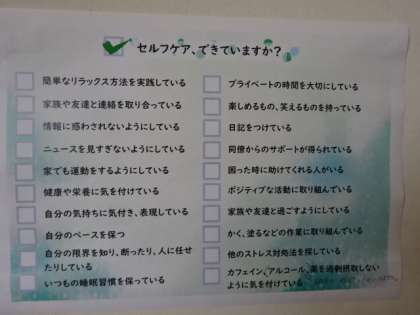 セルフケア、できていますか？
簡単なリラックス方法を実践している
家族や友達と連絡を取り合っている
情報に惑わされないようにしている
ニュースを見すぎないようにしている
家でも運動をするようにしている
健康や栄養に気を付けている
自分の気持ちに気付き、表現している
自分のペースを保つ
自分の限界を知り、断ったり、人に任せ
たりしている
いつもの睡眠習慣を保っている
プライベートの時間を大切にしている
楽しめるもの、笑えるものを持っている
日記をつけている
同僚からのサポートが得られている
困った時に助けてくれる人がいる
ポジティブな活動に取り組んでいる
家族や友達と過ごすようにしている
かく、塗るなどの作業に取り組んでいる
他のストレス対処法を探している
カフェイン、アルコール、薬を過剰摂取しない
ように気を付けている